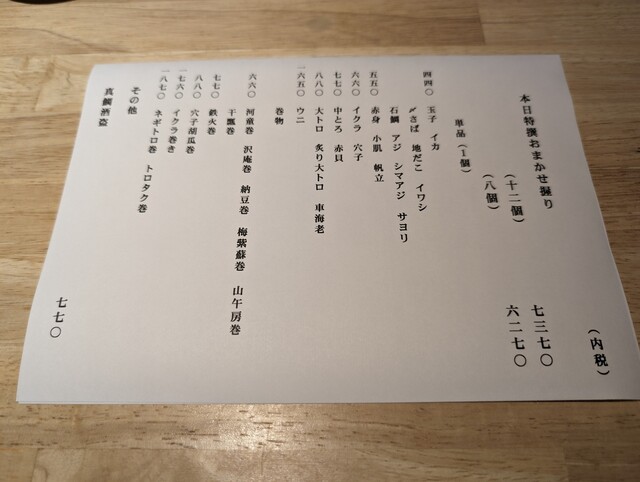 (内税)
本日特撰おまかせ握り
(十二個) 七三七〇
(八個) 六二七〇
単品(1個)
四四〇 玉子 イカ
〆さば 地だこ イワシ
石鯛 アジ シマアジ サヨリ
五五〇 赤身 小肌 帆立
六六〇 イクラ 穴子
七七〇 中とろ 赤貝
八八〇 大トロ 炙り大トロ 車海老
一六五〇 ウニ
巻物
六六〇 河童巻 沢庵巻 納豆巻 梅紫蘇巻 山午房巻
干瓢巻
七七〇 鉄火巻
八八〇 穴子胡瓜巻
一七六〇 イクラ巻き
一八七〇 ネギトロ巻 トロタク巻
その他
真鯛酒盗 七七〇